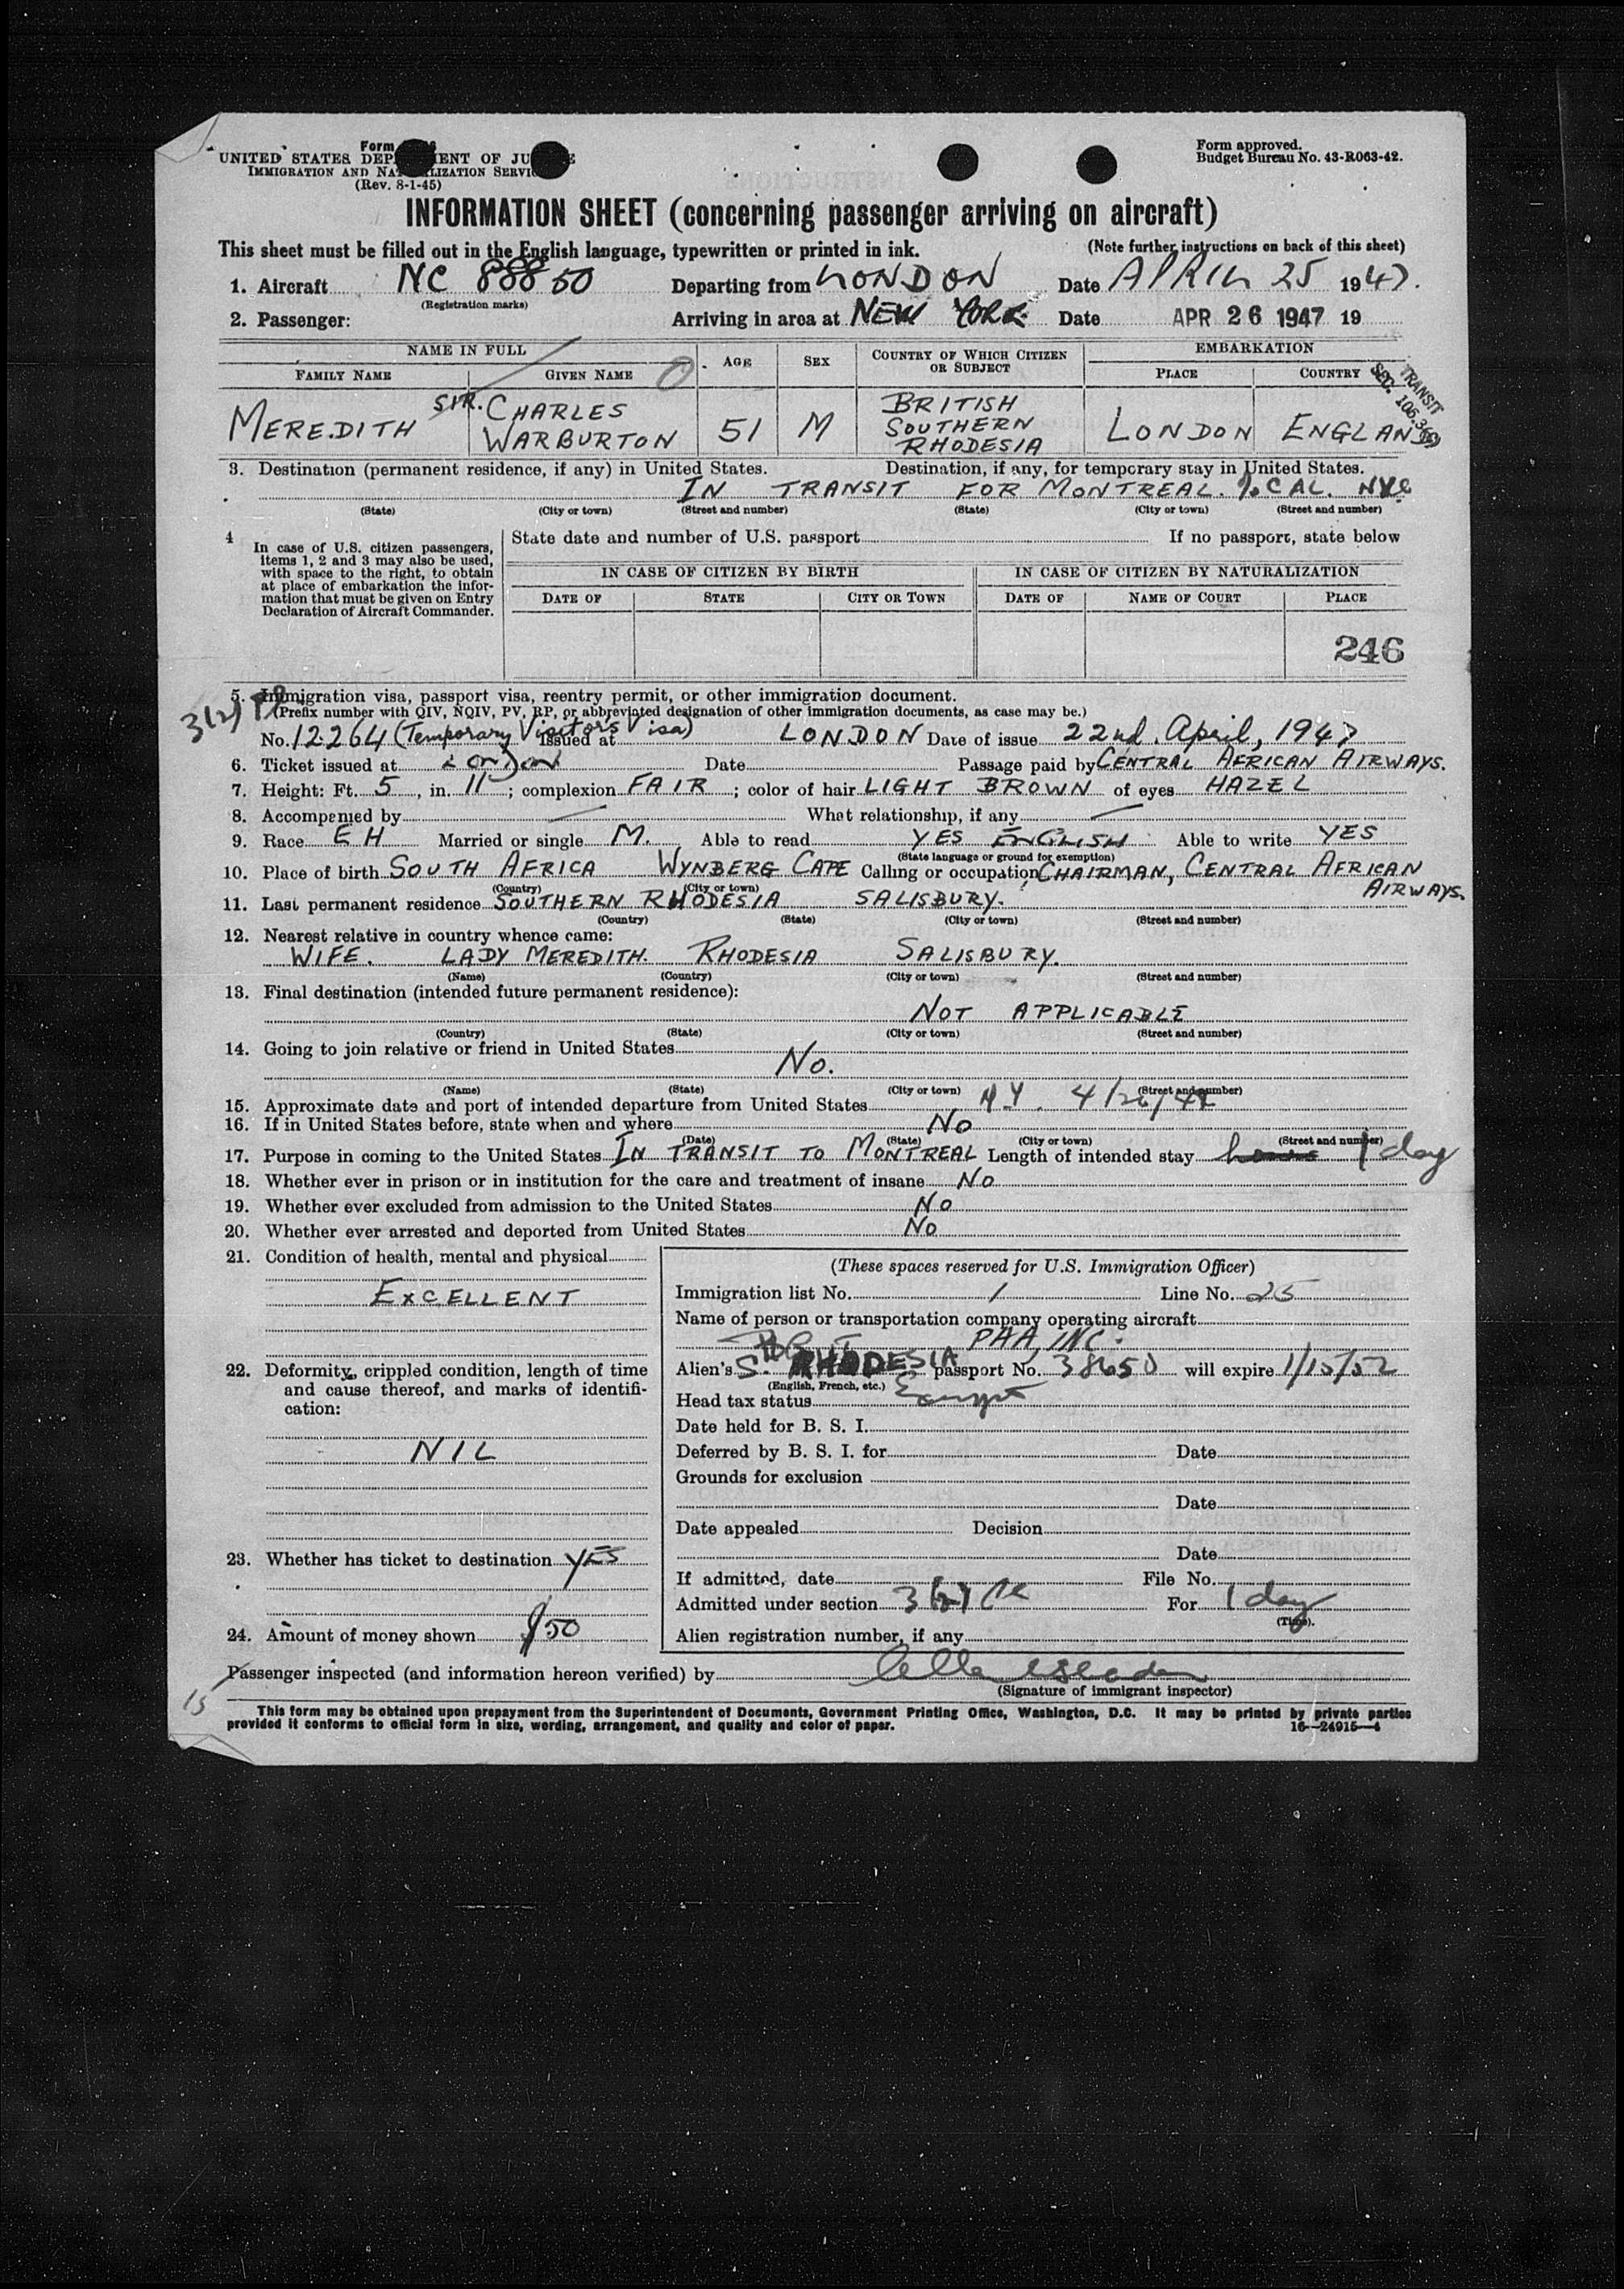 Form
UNITED STATES DEPARTMENT OF JUSTICE
IMMIGRATION AND NATURALIZATION SERVICE
(Rev. 8-1-45)
Form approved.
Budget Bureau No. 43-R063-42.
INFORMATION SHEET (concerning passenger arriving on aircraft)
This sheet must be filled out in the English language, typewritten or printed in ink. (Note further instructions on back of this sheet)
1. Aircraft NC 88850 Departing from LONDON Date APRIL 25 1947.
(Registration marks)
2. Passenger: Arriving in area at NEW YORK Date APR 26 1947 19
NAME IN FULL AGE SEX COUNTRY OF WHICH CITIZEN OR SUBJECT EMBARKATION
FAMILY NAME GIVEN NAME PLACE COUNTRY
TRANSIT
MEREDITH SIR. CHARLES WARBURTON 51 M BRITISH SOUTHERN RHODESIA LONDON ENGLAND
3. Destination (permanent residence, if any) in United States. Destination, if any, for temporary stay in United States.
IN TRANSIT FOR MONTREAL. % CAL. NYC
(State) (City or town) (Street and number) (State) (City or town) (Street and number)
4 In case of U.S. citizen passengers, items 1, 2 and 3 may also be used, with space to the right, to obtain at place of embarkation the information that must be given on Entry Declaration of Aircraft Commander.
State date and number of U.S. passport If no passport, state below
IN CASE OF CITIZEN BY BIRTH IN CASE OF CITIZEN BY NATURALIZATION
DATE OF STATE CITY OR TOWN DATE OF NAME OF COURT PLACE
246
5. Immigration visa, passport visa, reentry permit, or other immigration document.
3(2)
(Prefix number with QIV, NQIV, PV, RP, or abbreviated designation of other immigration documents, as case may be.)
No. 12264 (Temporary Visitors Visa) Issued at LONDON Date of issue 22nd. April, 1947
6. Ticket issued at London Date Passage paid by CENTRAL AFRICAN AIRWAYS.
7. Height: Ft. 5, in. 11; complexion FAIR; color of hair LIGHT BROWN of eyes HAZEL
8. Accompanied by — What relationship, if any —
9. Race EH Married or single M. Able to read YES ENGLISH Able to write YES
(State language or ground for exemption)
10. Place of birth SOUTH AFRICA WYNBERG CAPE Calling or occupation CHAIRMAN, CENTRAL AFRICAN AIRWAYS.
(Country) (City or town)
11. Last permanent residence SOUTHERN RHODESIA SALISBURY.
(Country) (State) (City or town) (Street and number)
12. Nearest relative in country whence came:
WIFE. LADY MEREDITH. RHODESIA SALISBURY.
(Name) (Country) (City or town) (Street and number)
13. Final destination (intended future permanent residence):
NOT APPLICABLE
(Country) (State) (City or town) (Street and number)
14. Going to join relative or friend in United States
No.
(Name) (State) (City or town) (Street and number)
15. Approximate date and port of intended departure from United States N.Y. 4/26/47
16. If in United States before, state when and where No
(Date) (State) (City or town) (Street and number)
17. Purpose in coming to the United States IN TRANSIT TO MONTREAL Length of intended stay 1 day
18. Whether ever in prison or in institution for the care and treatment of insane No
19. Whether ever excluded from admission to the United States No
20. Whether ever arrested and deported from United States No
21. Condition of health, mental and physical
EXCELLENT
22. Deformity, crippled condition, length of time and cause thereof, and marks of identification:
NIL
23. Whether has ticket to destination YES
24. Amount of money shown $50
(These spaces reserved for U.S. Immigration Officer)
Immigration list No. 1 Line No. 25
Name of person or transportation company operating aircraft
PAA, INC.
Alien's S. RHODESIA passport No. 38650 will expire 1/15/52
(English, French, etc.)
Head tax status Exempt
Date held for B. S. I.
Deferred by B. S. I. for Date
Grounds for exclusion
Date
Date appealed Decision
Date
If admitted, date File No.
Admitted under section 3(2) For 1 day
(Time).
Alien registration number, if any
Passenger inspected (and information hereon verified) by
(Signature of immigrant inspector)
15
This form may be obtained upon prepayment from the Superintendent of Documents, Government Printing Office, Washington, D.C. It may be printed by private parties
provided it conforms to official form in size, wording, arrangement, and quality and color of paper. 16—24915-4